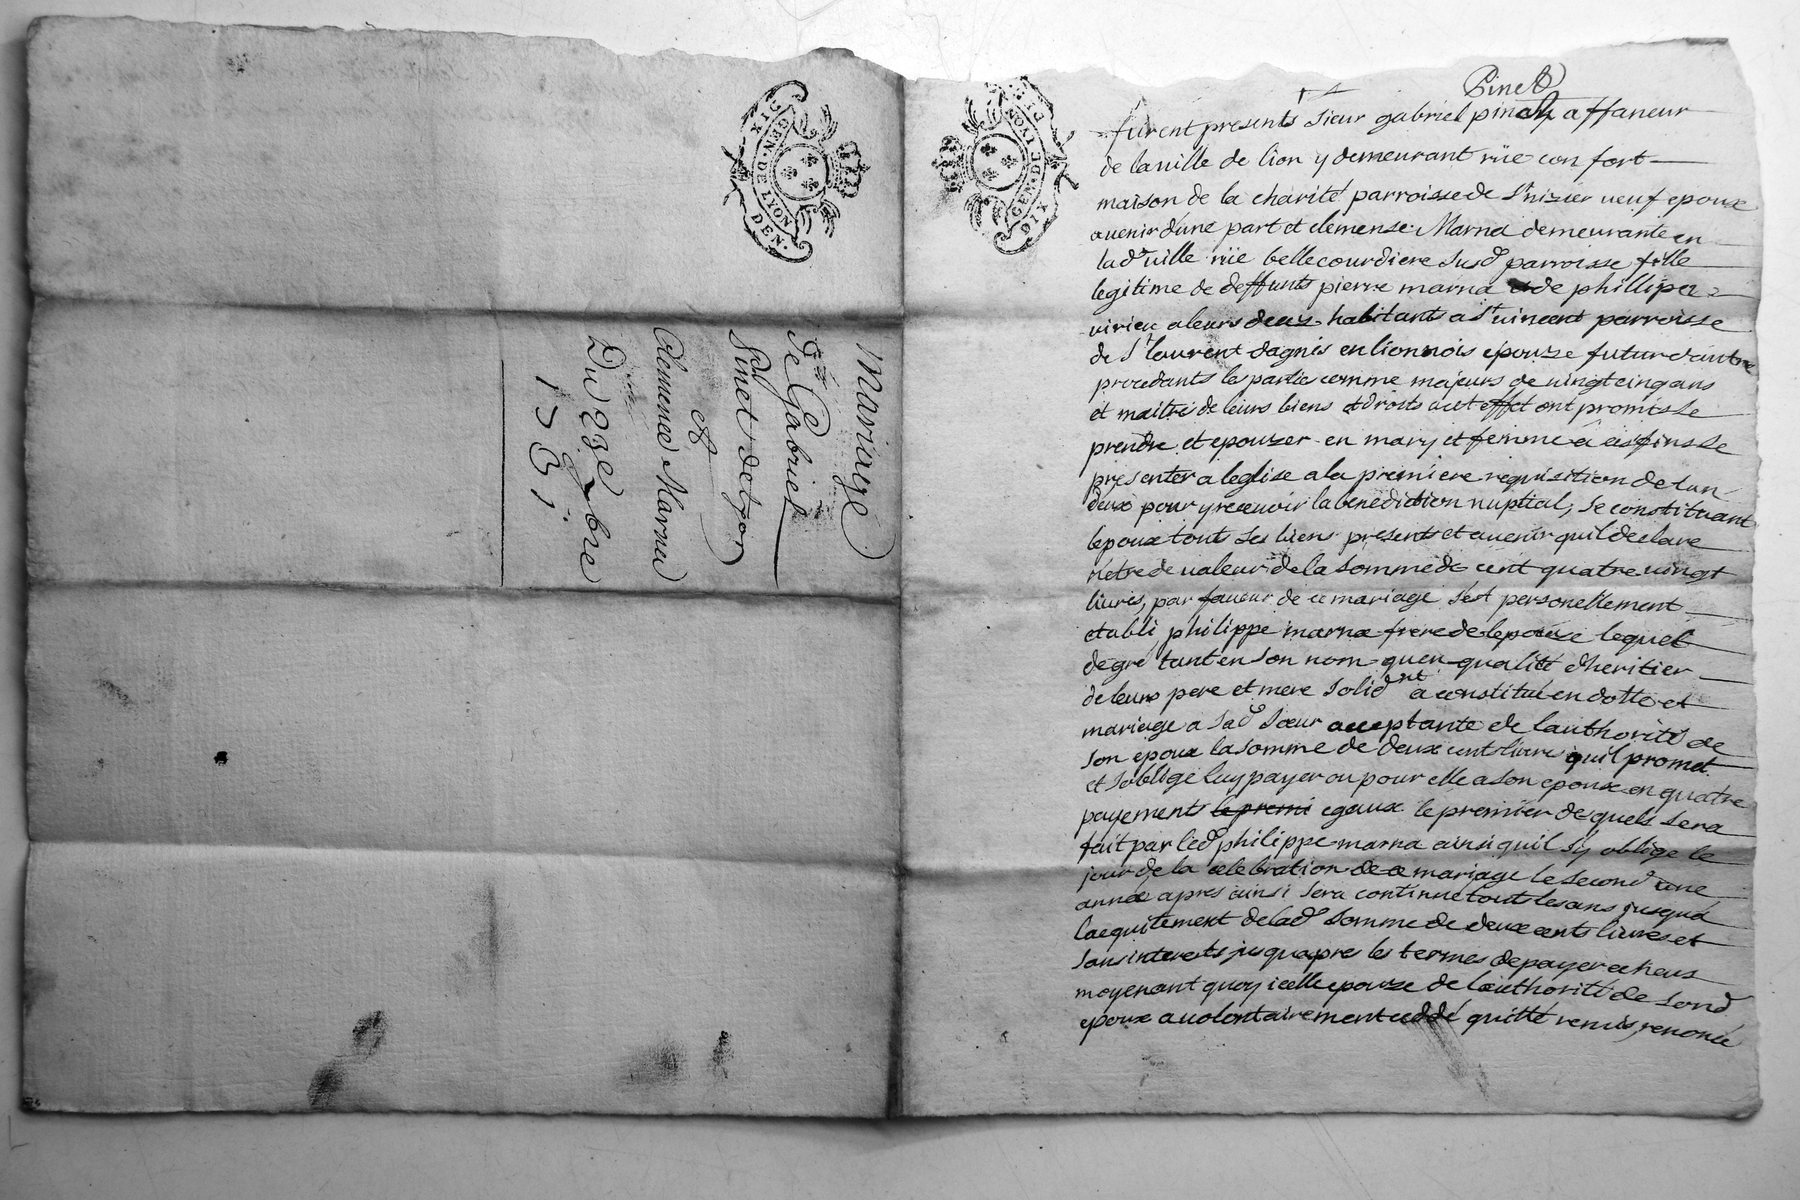 GEN·DE LYON
DIX DEN·
Mariage
de Sr Gabriel
Pinet de Lyon
et
Clemence Marnea
Du 23e 7bre
1781
GEN·DE LYON
DIX
Pinet
furent presents sieur gabriel pinatz affaneur
de la ville de lion y demeurant rüe con fort
maison de la charité parroisse de St nizier veuf epoux
avenir dune part et clemense Marna demeurante en
lad ville rüe belle courdiere susd parroisse fille
legitime de deffunts pierre marna et de phillipa
virieu a leurs deux habitants a St vincent parroisse
de St laurent dagnis en lionnois epouze futur dautre
procedants les partie comme majeurs de vingt cinq ans
et maitre de leurs biens et droits a cet effet ont promis se
prendre et epouzer en mary et femme a ces fins se
presenter a leglise a la premiere requisition de lun
deux pour y recevoir la benediction nuptial, se constituant
lepoux tout ses biens presents et avenir quil declare
netre de valeur de la somme de cent quatre vingt
livres, par faveur de ce mariage sest personellement
etabli philippe marna frere de lepouze lequel
de gre tant en son nom quen qualité dheritier
de leurs pere et mere solidnt a constitué en dotte et
mariage a sad sœur acceptante de lauthorité de
son epoux la somme de deux cents livre quil promet
et soblige luy payer ou pour elle a son epoux en quatre
payements le premi egaux le premier des quels sera
fait par led philippe marna ainsi quil sy oblige le
jour de la celebration de ce mariage le second une
année apres ainsi sera continué tout les ans jusqua
lacquitement de lad somme de deux cents livres et
sans interets jusquapres les termes de payer echeus
moyenant quoy icelle epouze de lauthorité de sond
epoux a volontairement ceddé quitté remis, renoncé